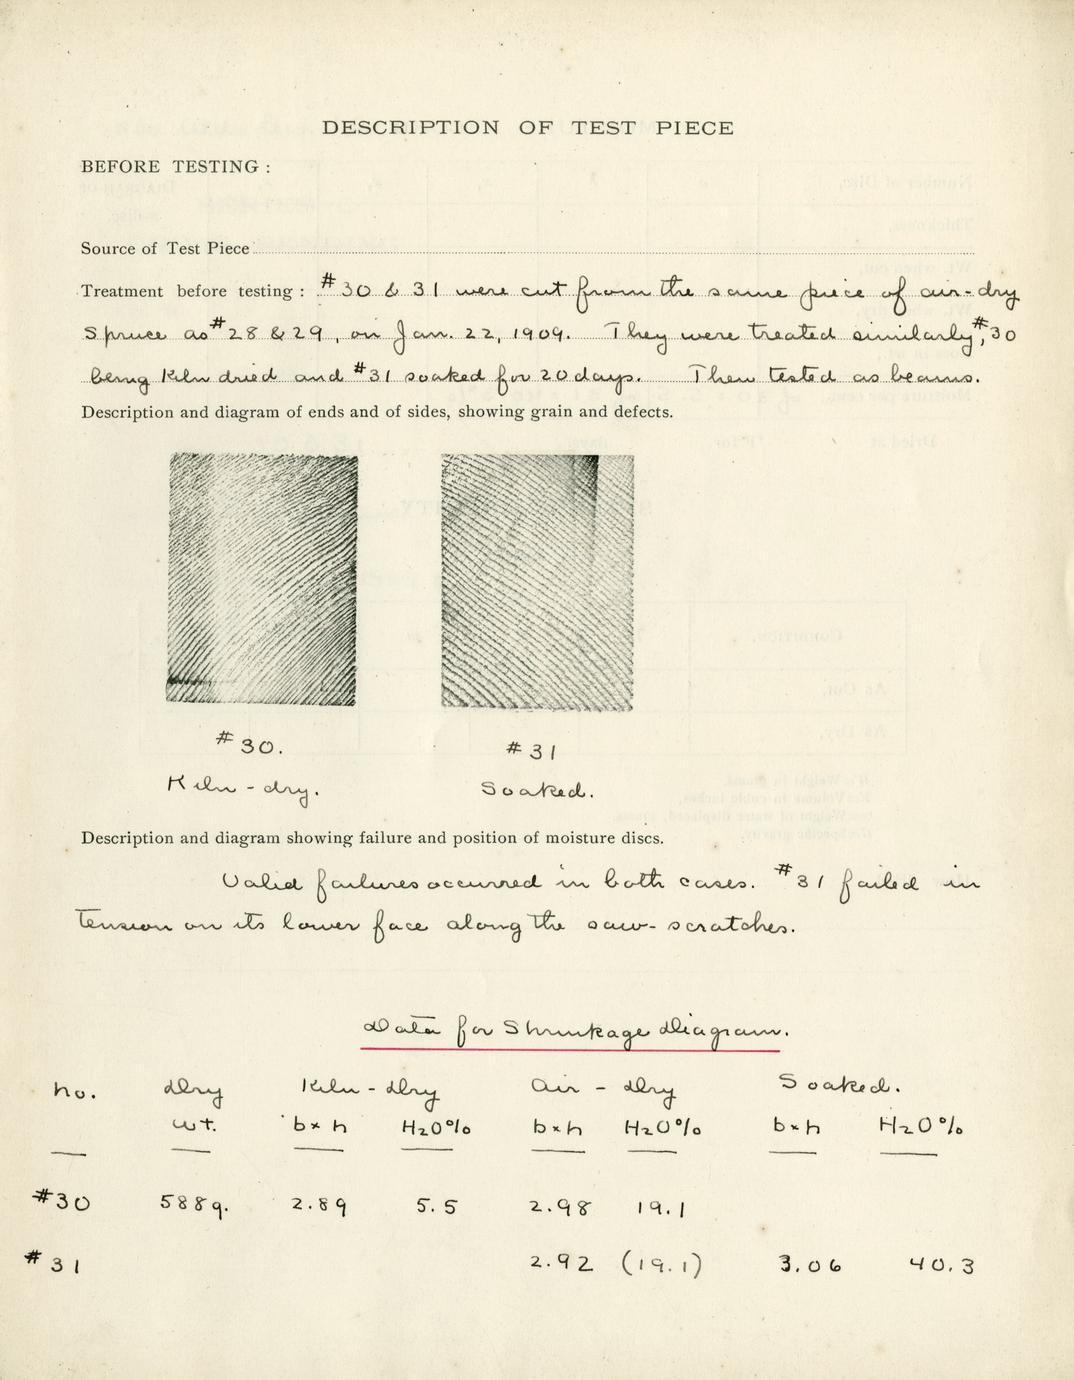 DESCRIPTION OF TEST PIECE
BEFORE TESTING :
Source of Test Piece
Treatment before testing : #30 & 31 were cut from the same piece of air-dry
Spruce as #28 & 29, on Jan. 22, 1909. They were treated similarly, #30
being Kiln dried and #31 soaked for 20 days. Then tested as beams.
Description and diagram of ends and of sides, showing grain and defects.
#30. #31
Kiln-dry. Soaked.
Description and diagram showing failure and position of moisture discs.
Valid failures occurred in both cases. #31 failed in
tension on its lower face along the saw-scratches.
Data for Shrinkage Diagram.
No. Dry Kiln-Dry Air-Dry Soaked.
wt. b×h H2O% b×h H2O% b×h H2O%
#30 588g. 2.89 5.5 2.98 19.1
#31 2.92 (19.1) 3.06 40.3